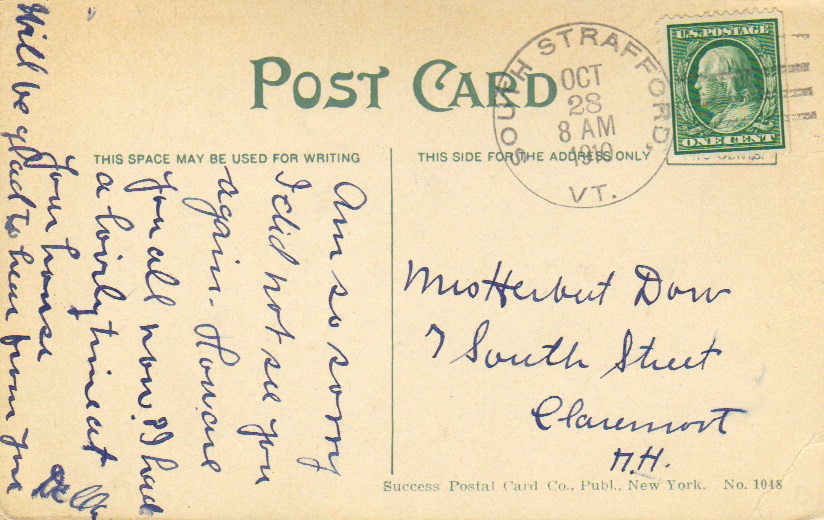 POST CARD
SOUTH STRAFFORD,
OCT
28
8 AM
1910
VT.
U.S. POSTAGE
ONE CENT
THIS SPACE MAY BE USED FOR WRITING
THIS SIDE FOR THE ADDRESS ONLY
CENTS.
Am so sorry
I did not see you
again. How are
you all now? I had
a lovely time at
your house
Will be glad to hear from you
Della
Mrs Herbert Dow
7 South Street
Claremont
N.H.
Success Postal Card Co., Publ., New York. No. 1048